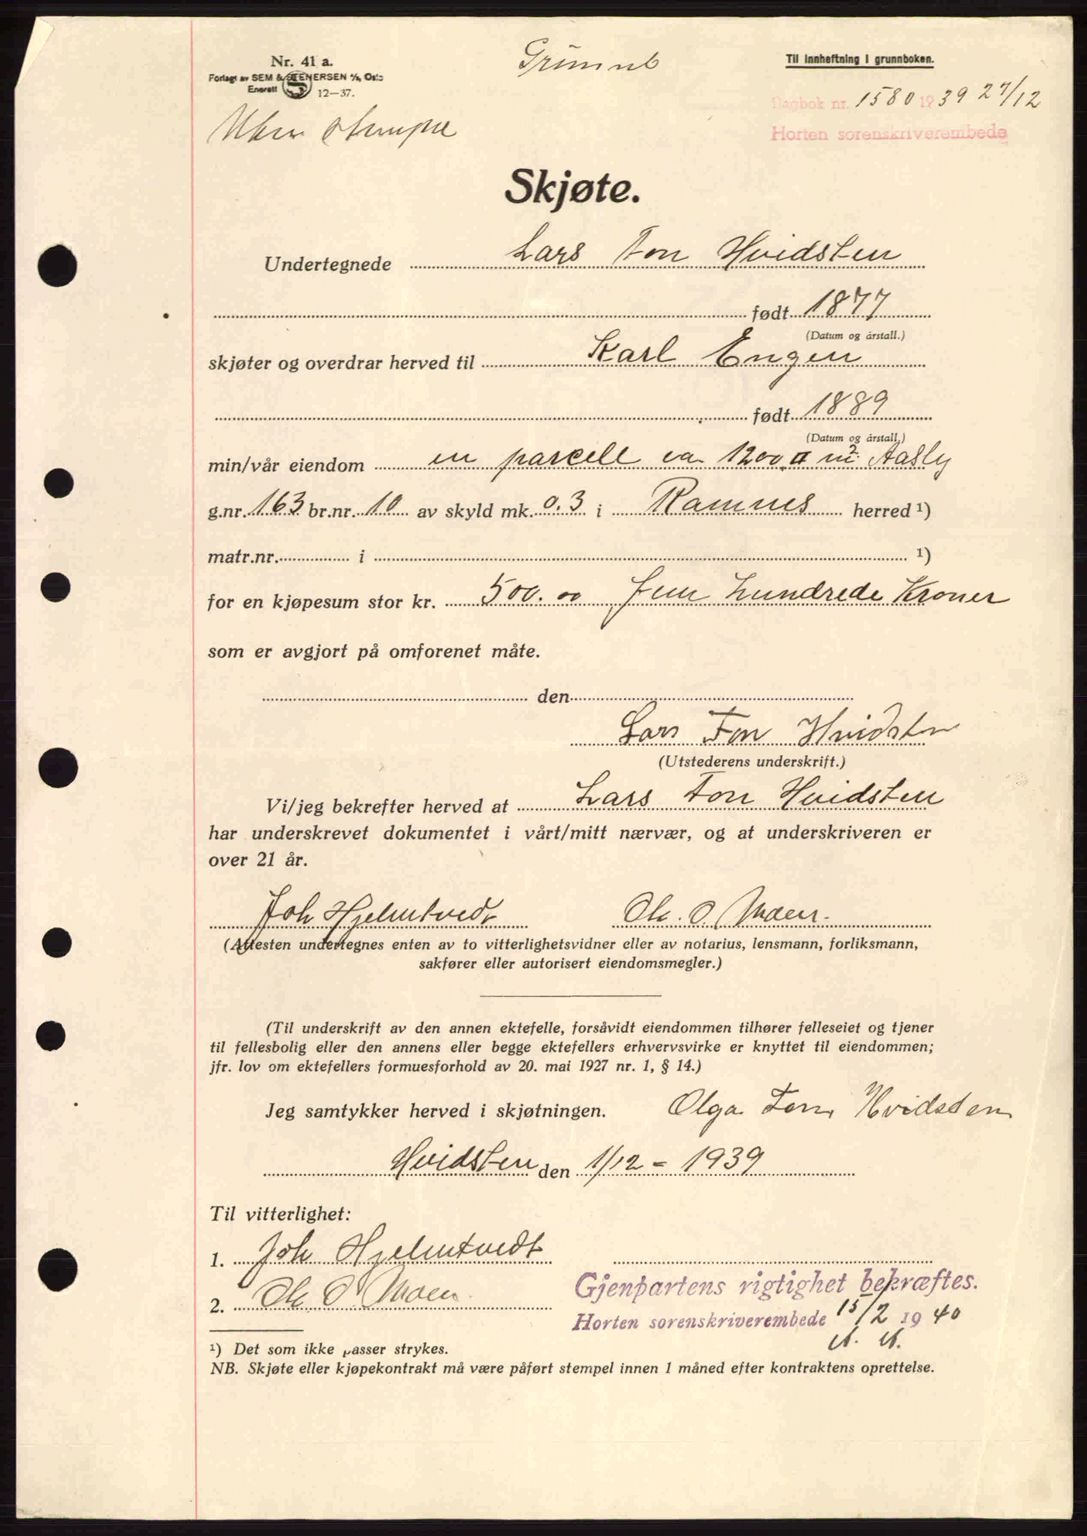 Nr. 41 a.
Forlagt av SEM & STENERSEN A/S, Oslo
Enerett 12-37.
Til innheftning i grunnboken.
Dagbok nr. 1580 1939 27/12
Horten sorenskriverembede
Skjøte.
Undertegnede Lars Fon Hvidsten
født 1877
(Datum og årstall.)
skjøter og overdrar herved til Karl Engen
født 1889
(Datum og årstall.)
min/vår eiendom en parcelle ca 1200 m² Aasly
g.nr. 163 br.nr. 10 av skyld mk. 0.3 i Ramnes herred ¹)
matr.nr. i ¹)
for en kjøpesum stor kr. 500.00 fem hundrede Kroner
som er avgjort på omforenet måte.
den
Lars Fon Hvidsten
(Utstederens underskrift.)
Vi/jeg bekrefter herved at Lars Fon Hvidsten
har underskrevet dokumentet i vårt/mitt nærvær, og at underskriveren er
over 21 år.
Joh Hjelmtvedt Ole. O. Moen.
(Attesten undertegnes enten av to vitterlighetsvidner eller av notarius, lensmann, forliksmann,
sakfører eller autorisert eiendomsmegler.)
(Til underskrift av den annen ektefelle, forsåvidt eiendommen tilhører felleseiet og tjener
til fellesbolig eller den annens eller begge ektefellers erhvervsvirke er knyttet til eiendommen;
jfr. lov om ektefellers formuesforhold av 20. mai 1927 nr. 1, § 14.)
Jeg samtykker herved i skjøtningen. Olga Fon Hvidsten
Hvidsten den 1/12 - 1939
Til vitterlighet:
1. Joh Hjelmtvedt
2. Ole. O. Moen.
Gjenpartens rigtighet bekræftes.
Horten sorenskriverembede 15/2 1940
¹) Det som ikke passer strykes.
NB. Skjøte eller kjøpekontrakt må være påført stempel innen 1 måned efter kontraktens oprettelse.